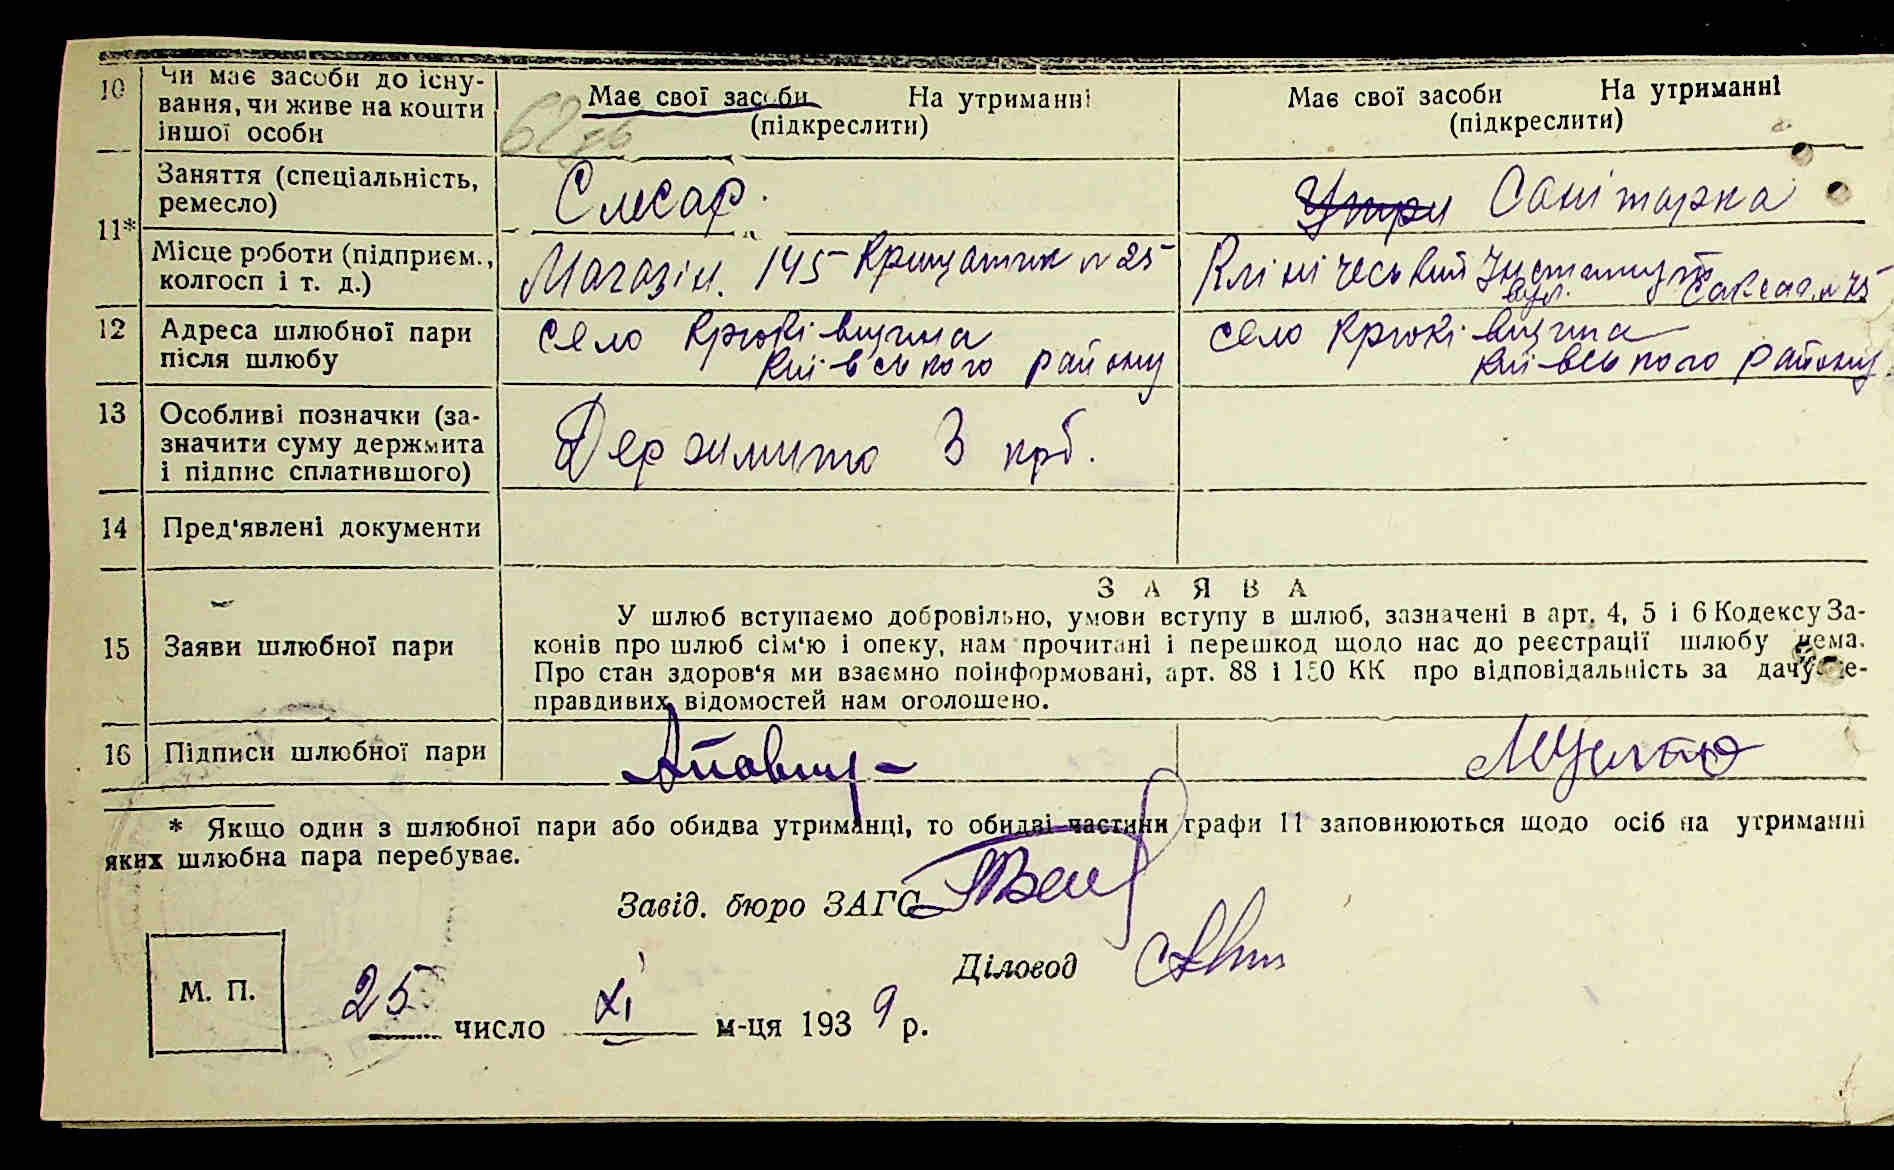 10 Чи має засоби до існу-
вання, чи живе на кошти
іншої особи
Має свої засоби На утриманні
(підкреслити)
Має свої засоби На утриманні
(підкреслити)
11*
Заняття (спеціальність,
ремесло)
Слюсар.
Утри Санітарка
Місце роботи (підприєм.,
колгосп і т. д.)
Магазін. 145 Крищатик № 25
Клінічеський Інститут
вул. Саксаг. № 75
12 Адреса шлюбної пари
після шлюбу
село Крюківщина
Київського району
село Крюківщина
Київського району
13 Особливі позначки (за-
значити суму держмита
і підпис сплатившого)
Держмито 3 крб.
14 Пред'явлені документи
15 Заяви шлюбної пари
ЗАЯВА
У шлюб вступаємо добровільно, умови вступу в шлюб, зазначені в арт. 4, 5 і 6 Кодексу За-
конів про шлюб сім'ю і опеку, нам прочитані і перешкод щодо нас до реєстрації шлюбу нема.
Про стан здоров'я ми взаємно поінформовані, арт. 88 і 150 КК про відповідальність за дачу не-
правдивих відомостей нам оголошено.
16 Підписи шлюбної пари
* Якщо один з шлюбної пари або обидва утриманці, то обидві частини графи 11 заповнюються щодо осіб на утриманні
яких шлюбна пара перебуває.
Завід. бюро ЗАГС
Діловод
М. П.
25 число XI м-ця 1939 р.